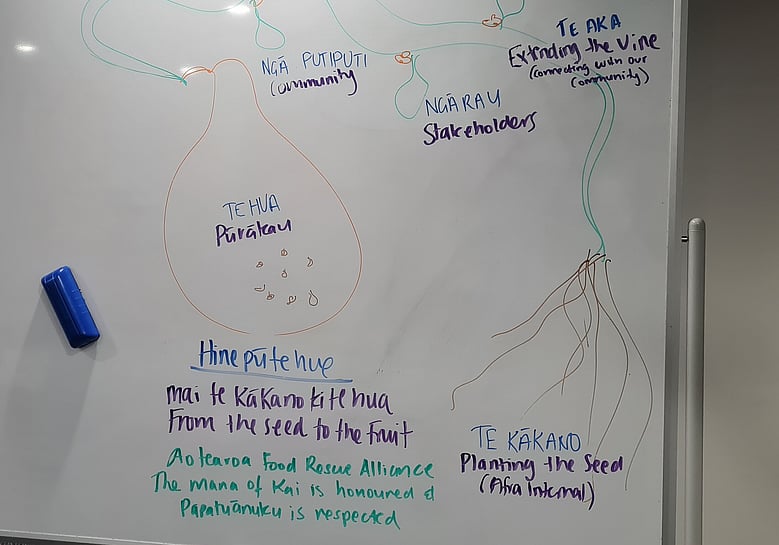 NGĀ PUTIPUTI
Community
NGĀ RAU
Stakeholders
TE AKA
Extending the Vine
(connecting with our
community)
TE HUA
Pūrākau
Hine pū te hue
mai te Kākano ki te hua
From the seed to the Fruit
Aotearoa Food Rescue Alliance
The mana of Kai is honoured &
Papatūānuku is respected
TE KĀKANO
Planting the Seed
(Afra Internal)